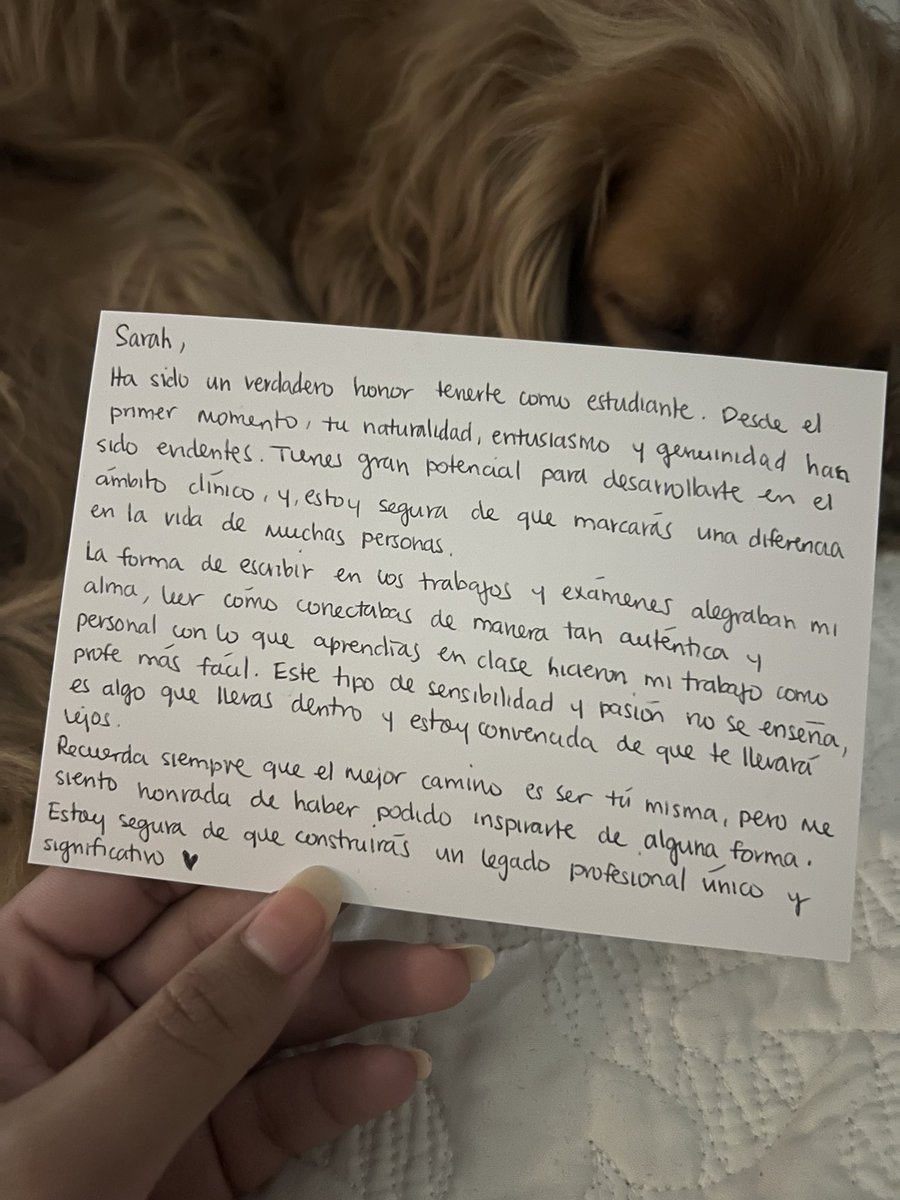 Sarah,
Ha sido un verdadero honor tenerte como estudiante. Desde el
primer momento, tu naturalidad, entusiasmo y genuinidad han
sido evidentes. Tienes gran potencial para desarrollarte en el
ámbito clínico, y, estoy segura de que marcarás una diferencia
en la vida de muchas personas.
La forma de escribir en los trabajos y exámenes alegraban mi
alma, leer cómo conectabas de manera tan auténtica y
personal con lo que aprendías en clase hicieron mi trabajo como
profe más fácil. Este tipo de sensibilidad y pasión no se enseña,
es algo que llevas dentro y estoy convencida de que te llevará
lejos.
Recuerda siempre que el mejor camino es ser tú misma, pero me
siento honrada de haber podido inspirarte de alguna forma.
Estoy segura de que construirás un legado profesional único y
significativo ♥